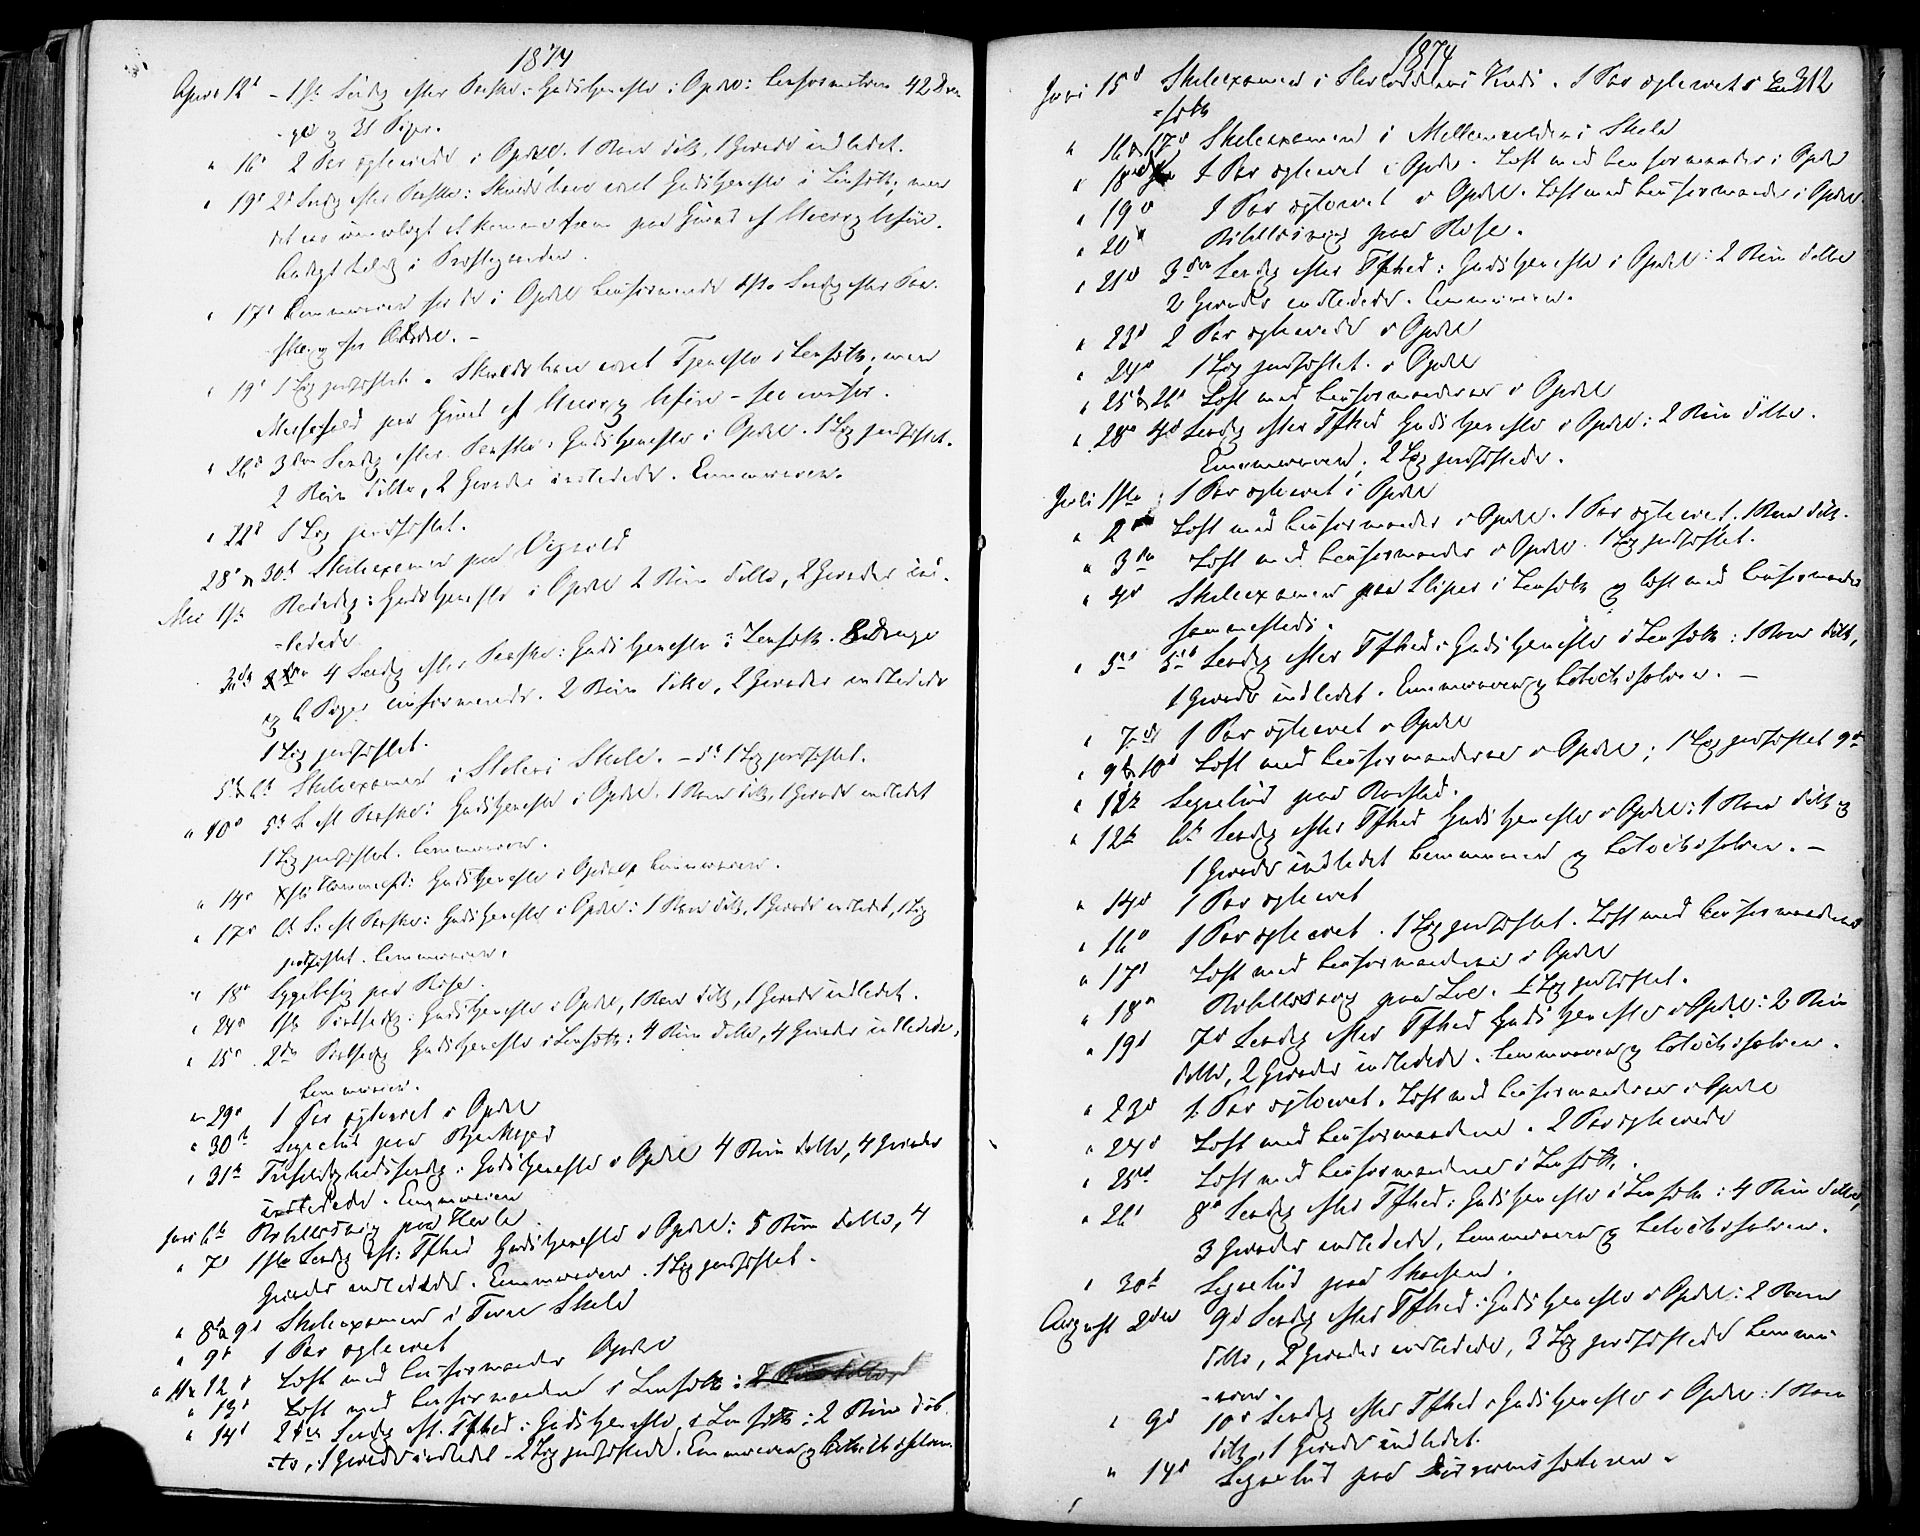 1874
April 12te – 1ste Søndag efter Paaske: Gudstjeneste i Opdal: Confirmation 42 Dren
-ge og 31 Piger.
" 16de 2 Par oglevede i Opdal. 1 Barn døbt, 1 Qvinde indledet.
" 19de 2den Søndag efter Paaske: Skulde have været Gudstjeneste i Lønset, men
det var umuligt at komme frem paa Grund af
" 17de Communion for de i Opdal Confirmerede 1ste Søndag efter Paa-
ske og for Ældre. –
" 19de 1 Lig jordfæstet. Skulde have været Tjeneste i Lønset, men
Messefald paa Grund af – see ovenfor.
" 26de 3die Søndag efter Paaske: Gudstjeneste i Opdal. 1 Lig jordfæstet.
2 Børn døbte, 2 Qvinder indledede. Communion.
" 22de 1 Lig jordfæstet.
28de og 30te Skoleexamen paa Vigvold
Mai 1ste Bededag: Gudstjeneste i Opdal 2 Børn døbte, 2 Qvinder ind-
-ledede
3die 4 Søndag efter Paaske: Gudstjeneste i Lønset. 8 Drenge
og 6 Piger confirmerede. 2 Børn døbte, 2 Qvinder indledede
1 Lig jordfæstet.
5te & 6te Skoleexamen i Stølens Skole. – 5te 1 Lig jordfæstet.
" 10de 5te S. eft Paaske: Gudstjeneste i Opdal. 1 Barn døbt, 1 Qvinde indledet
1 Lig jordfæstet. Communion.
" 14de Christi Himmelf: Gudstjeneste i Opdal Communion.
" 17de 6te S. eft Paaske: Gudstjeneste i Opdal: 1 Barn døbt, 1 Qvinde indledet, 1 Lig
jordfæstet. Communion.
" 18de Sygebesøg paa Rise.
" 24de 1ste Pintsedag: Gudstjeneste i Opdal, 1 Barn døbt, 1 Qvinde indledet.
" 25de 2den Pintsedag Gudstjeneste i Lønset: 4 Børn døbte, 4 Qvinder indledede,
Communion.
" 29de 1 Par oglevet i Opdal
" 30te paa
" 31te Trefoldighedssøndag: Gudstjeneste i Opdal 4 Børn døbte, 4 Qvinder
indledede. Communion
Juni 6te Bibellæsning paa
" 7de 1ste Søndag eft: Tfhed Gudstjeneste i Opdal: 5 Børn døbte, 4
Qvinder indledede. Communion. 1 Lig jordfæstet.
" 8de & 9de Skoleexamen i Skole
" 9de 1 Par oglevet
" 11 & 12te Læst med Confirmander Opdal
" 13de Læst med Confirmanderne i Lønset:
" 14de 2den Søndag eft. Tfhed: Gudstjeneste i Lønset: 2 Børn døb-
-te, 1 Qvinde indledet 2 Lig jordfæstede. Communion og
1874
Juni 15de Skoleexamen i Kreds. 1 Par oglevet i Løn
-set
" 16 & 17de Skoleexamen i Skole
" 18de 1 Par oglevet i Opdal. Læst med Confirmander i Opdal
" 19de 1 Par oglevet i Opdal. Læst med Confirmander i Opdal
" 20de Bibellæsning paa Rise.
" 21de 3die Søndag efter Tfhed: Gudstjeneste i Opdal: 2 Børn døbte
2 Qvinder indledede. Communion.
" 23de 2 Par oglevede i Opdal
" 24de 1 Lig jordfæstet. i Opdal
" 25de & 26de Læst med Confirmanderne i Opdal
" 28de 4de Søndag efter Tfhed Gudstjeneste i Opdal: 2 Børn døbte.
Communion, 2 Lig jordfæstede.
Juli 1ste 1 Par oglevet i Opdal
" 2de Læst med Confirmander i Opdal. 1 Par oglevet. 1 Barn døbt.
" 3die Læst med Confirmander i Opdal. 1 Lig jordfæstet.
" 4de Skoleexamen paa Sliper i Lønset og læst med Confirmander
sammesteds.
" 5te 5te Søndag efter Tfhed: Gudstjeneste i Lønset: 1 Barn døbt,
1 Qvinde indledet. Communion og Catechisation. –
" 7de 1 Par oglevet i Opdal
" 9 & 10de Læst med Confirmanderne i Opdal; 1 Lig jordfæstet 9de
" 11te paa
" 12te 6te Søndag efter Tfhed Gudstjeneste i Opdal: 1 Barn døbt og
1 Qvinde indledet Communion og Catechisation. –
" 14de 1 Par oglevet
" 16de 1 Par oglevet. 1 Lig jordfæstet. Læst med Confirmanderne
" 17de Læst med Confirmanderne i Opdal
" 18de Bibellæsning paa Loe. 1 Lig jordfæstet.
" 19de 7de Søndag efter Tfhed Gudstjeneste i Opdal: 2 Børn
døbte, 2 Qvinder indledede. Communion og Catechisation.
" 23de 1 Par oglevet. Læst med Confirmanderne i Opdal
" 24de Læst med Confirmanderne. 2 Par oglevede
" 25de Læst med Confirmanderne i Lønset.
" 26de 8de Søndag efter Tfhed: Gudstjeneste i Lønset: 4 Børn døbte,
3 Qvinder indledede, Communion og Catechisation.
" 30te paa
August 2den 9de Søndag efter Tfhed: Gudstjeneste i Opdal: 2 Børn
døbte, 2 Qvinder indledede, 3 Lig jordfæstede Commu-
-nion.
" 9de 10de Søndag efter Tfhed: Gudstjeneste i Opdal: 1 Barn
døbt, 1 Qvinde indledet.
" 14de paa